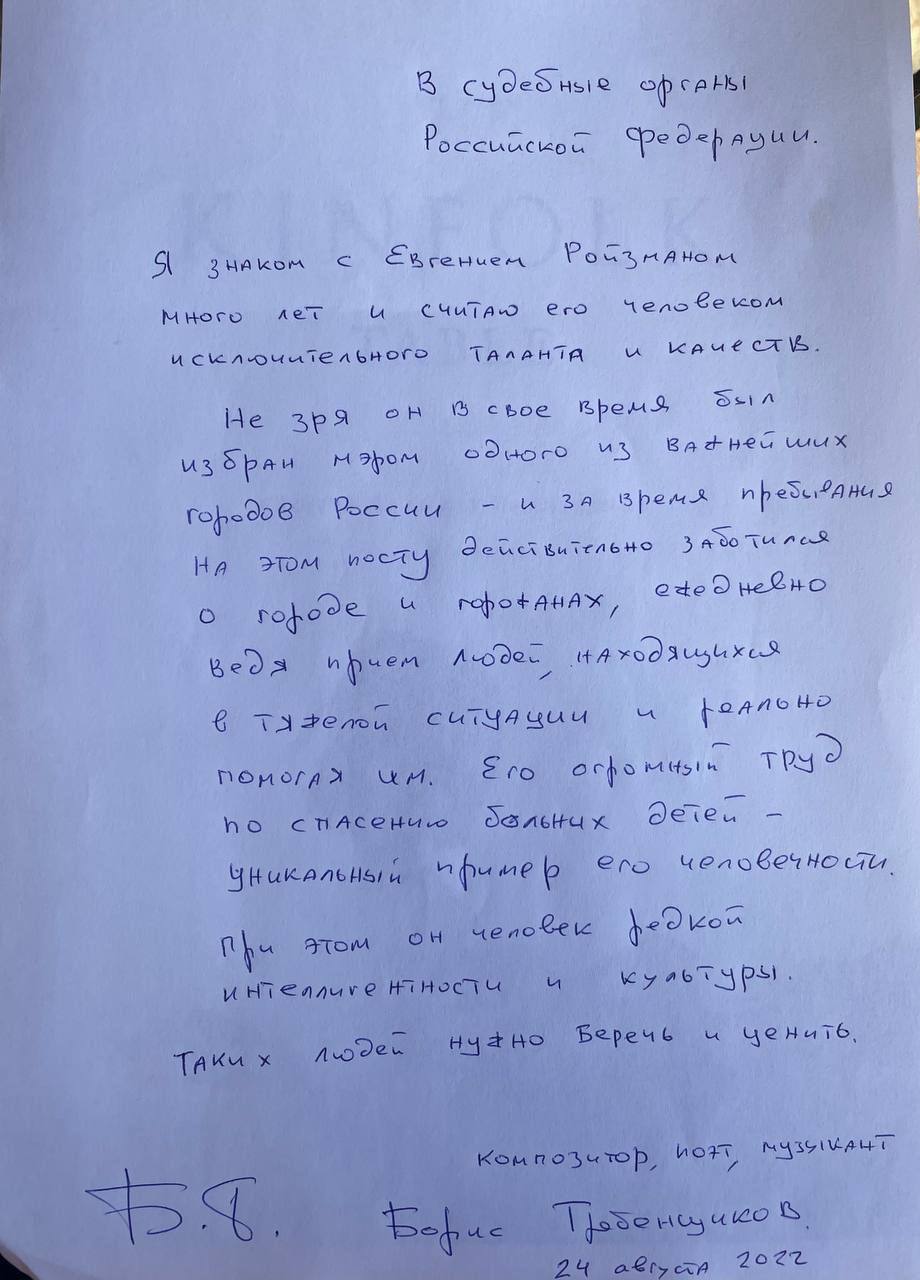 В судебные органы
Российской Федерации.
Я знаком с Евгением Ройзманом
много лет и считаю его человеком
исключительного таланта и качеств.
Не зря он в свое время был
избран мэром одного из важнейших
городов России – и за время пребывания
на этом посту действительно заботился
о городе и горожанах, ежедневно
ведя прием людей, находящихся
в тяжелой ситуации и реально
помогая им. Его огромный труд
по спасению больных детей –
уникальный пример его человечности.
При этом он человек редкой
интеллигентности и культуры.
Таких людей нужно беречь и ценить.
композитор, поэт, музыкант
Б.Г.
Борис Гребенщиков.
24 августа 2022
KINFOLK